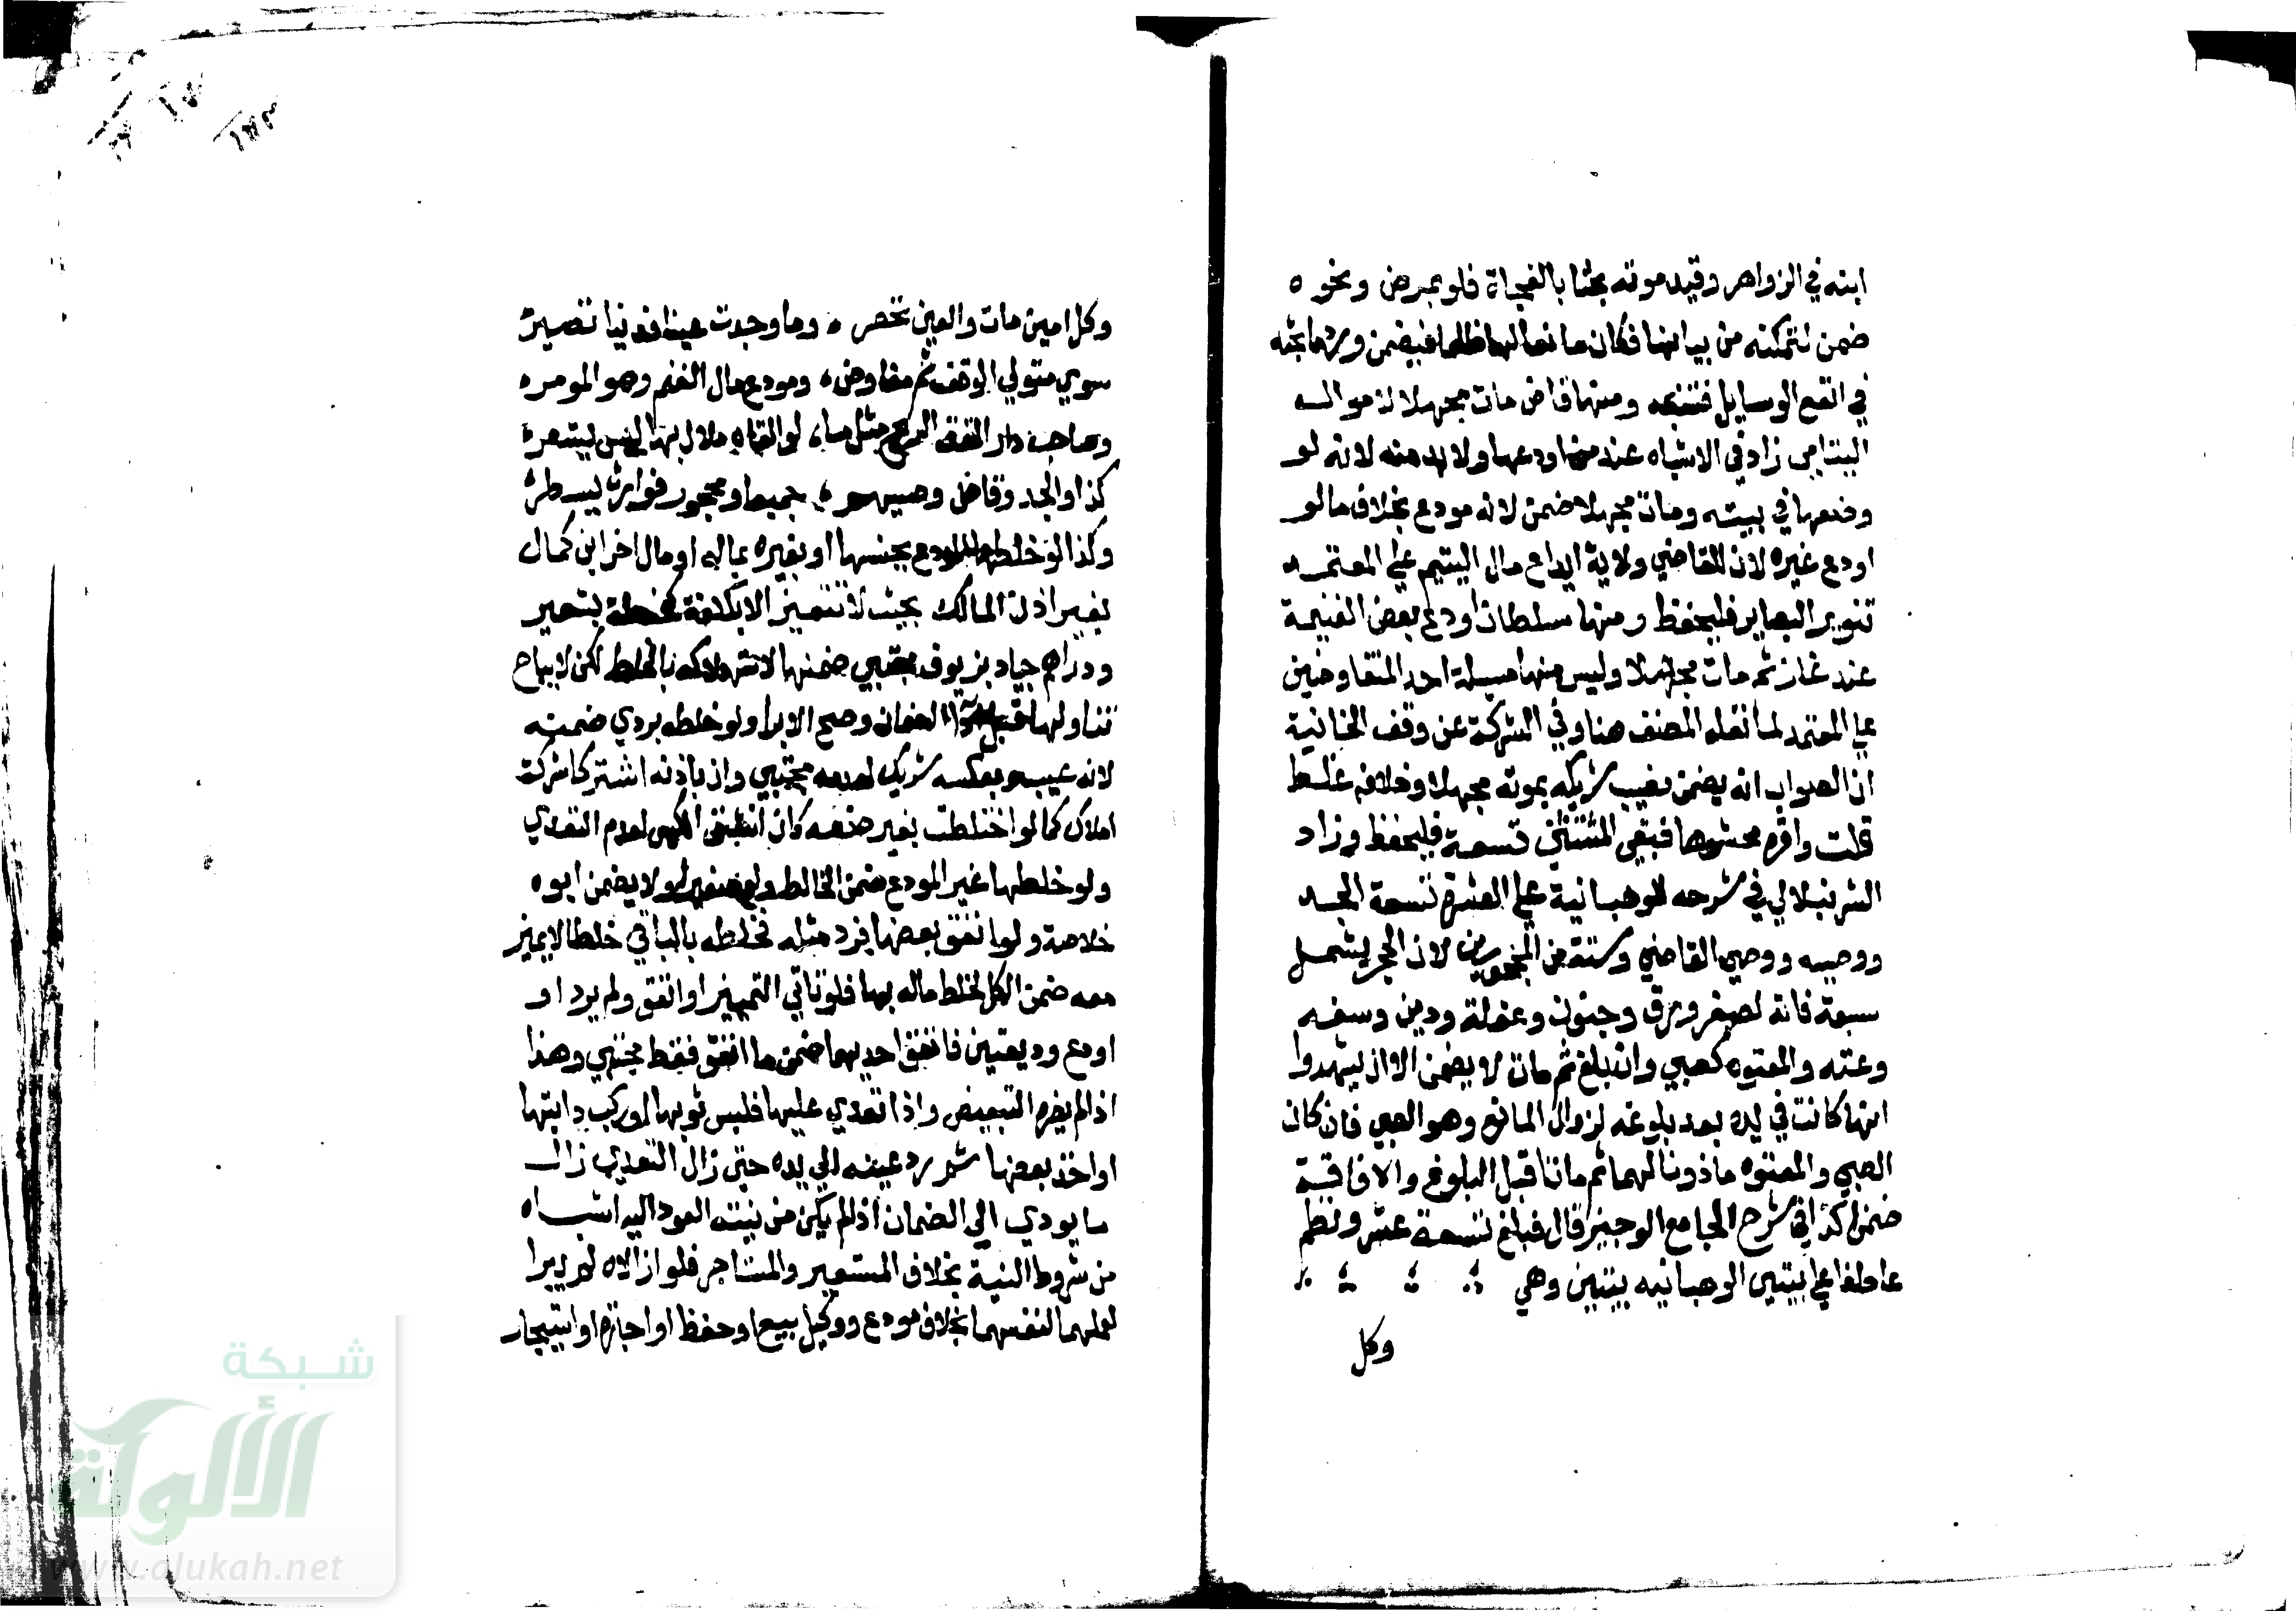 ابنه في الزواهر وقيد موته بحثا بالفجاة فلو بمرض ونحوه
ضمن لتمكنه من بيانها فكان مانعا لها ظلما فيضمن ورد ما بحثه
في انفع الوسايل فتنبه ومنها قاض مات مجهلا لاموال
اليتامي زاد في الاشباه عند من اودعها ولابد منه لانه لو
وضعها في بيته ومات مجهلا ضمن لانه مودع بخلاف ما لو
اودع غيره لان للقاضي ولاية ايداع مال اليتيم علي المعتمد
تنوير البصاير فليحفظ ومنها سلطان اودع بعض الغنيمة
عند غاز ثم مات مجهلا وليس منها مسيلة احد المتفاوضين
علي المعتمد لما نقله المصنف هنا وفي الشركة عن وقف الخانية
ان الصواب انه يضمن نصيب شريكه بموته مجهلا وخلافه غلط
قلت واقره محشوها فبقي المستثني تسعة فليحفظ وزاد
الشرنبلالي في شرحه للوهبانية علي العشرة تسعة الجد
ووصيه ووصي القاضي وستة من المحجورين لان الحجر يشمل
سبعة فانه لصغر ورق وجنون وغفلة ودين وسفه
وعته والمعتوه كصبي وان بلغ ثم مات لا يضمن الا ان يشهدوا
انها كانت في يده بعد بلوغه لزوال المانع وهو الصبي فان كان
الصبي والمعتوه ماذونا لهما ثم ماتا قبل البلوغ والافاقة
ضمنا كذا في شرح الجامع الوجيز قال فبلغ تسعة عشر ونظم
عاطفا علي بيتين الوهبانيه بيتين وهي
وكل
وكل امين مات والعين تحصر وما وجدت عينا فدينا تصير
سوي متولي الوقف ثم مفاوض ومودع مال الغنم وهو المومر
وصاحب دار القت الريح مثل ما لو القاه ملاك بها ليس يشعر
كذا والجد وقاض وصيهم جميعا ومحجور فوارث يسطر
وكذا لو خلطها المودع بجنسها او بغيره بماله او مال اخر ابن كمال
بغير اذن المالك بحيث لا تتميز الا بكلفة كحنطة بشعير
ودراهم جياد بزيوف مجتبي ضمنها لاستهلاكه بالخلط لكن لا يباح
تناولها قبل ادآء الضمان وصح الابرا ولو خلطه بردي ضمنه
لانه عيبه وبعكسه شريك لعدمه مجتبي وان باذنه اشتركا شركة
املاك كما لو اختلطت بغير صنعه كان انشق الكيس لعدم التعدي
ولو خلطها غير المودع ضمن الخالط ولو صغيرا ولا يضمن ابوه
خلاصة ولو انفق بعضها فرد مثله فخلطه بالباقي خلطا لا يميز
معه ضمن الكل لخلط ماله بها فلو تاتي التمييز او انفق ولم يرد او
اودع وديعتين فانفق احديهما ضمن ما انفق فقط مجتبي وهذا
اذا لم يضره التبعيض واذا تعدي عليها فلبس ثوبها او ركب دابتها
او اخذ بعضها ثم رد عينه الي يده حتي زال التعدي زال
ما يودي الي الضمان اذا لم يكن من نيته العود اليه اشباه
من شروط النية بخلاف المستعير والمستاجر فلو ازالاه لم يبرا
لعملهما لنفسهما بخلاف مودع ووكيل بيع او حفظ او اجازة او استيجار
شبكة
الألوكة
www.alukah.net